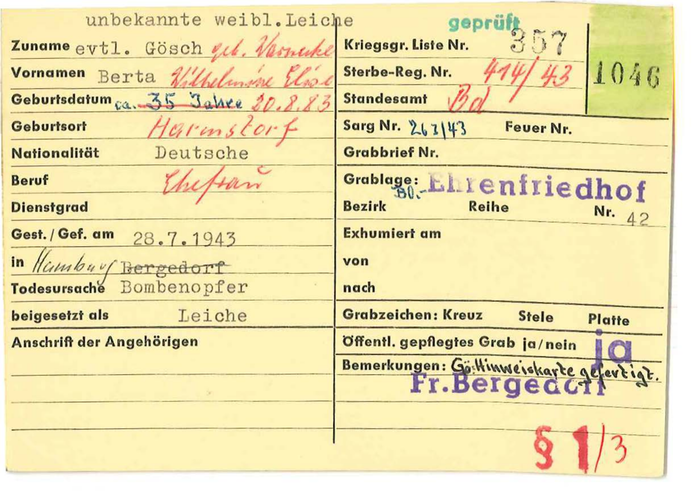 unbekannte weibl. Leiche
Zuname evtl. Gösch geb. Warnecke
Vornamen Berta Wilhelmine Elise
Geburtsdatum ca. 35 Jahre 20.8.83
Geburtsort Harmstorf
Nationalität Deutsche
Beruf Ehefrau
Dienstgrad
Gest./Gef. am 28.7.1943
in Hamburg Bergedorf
Todesursache Bombenopfer
beigesetzt als Leiche
Anschrift der Angehörigen
geprüft
Kriegsgr. Liste Nr. 357
Sterbe-Reg. Nr. 414/43
Standesamt Bd
1046
Sarg Nr. 267/43 Feuer Nr.
Grabbrief Nr.
Grablage: Bd.- Ehrenfriedhof
Bezirk Reihe Nr. 42
Exhumiert am
von
nach
Grabzeichen: Kreuz Stele Platte
Öffentl. gepflegtes Grab ja/nein ja
Bemerkungen: Gö. Hinweiskarte gefertigt.
Fr. Bergedorf
§ 1/3